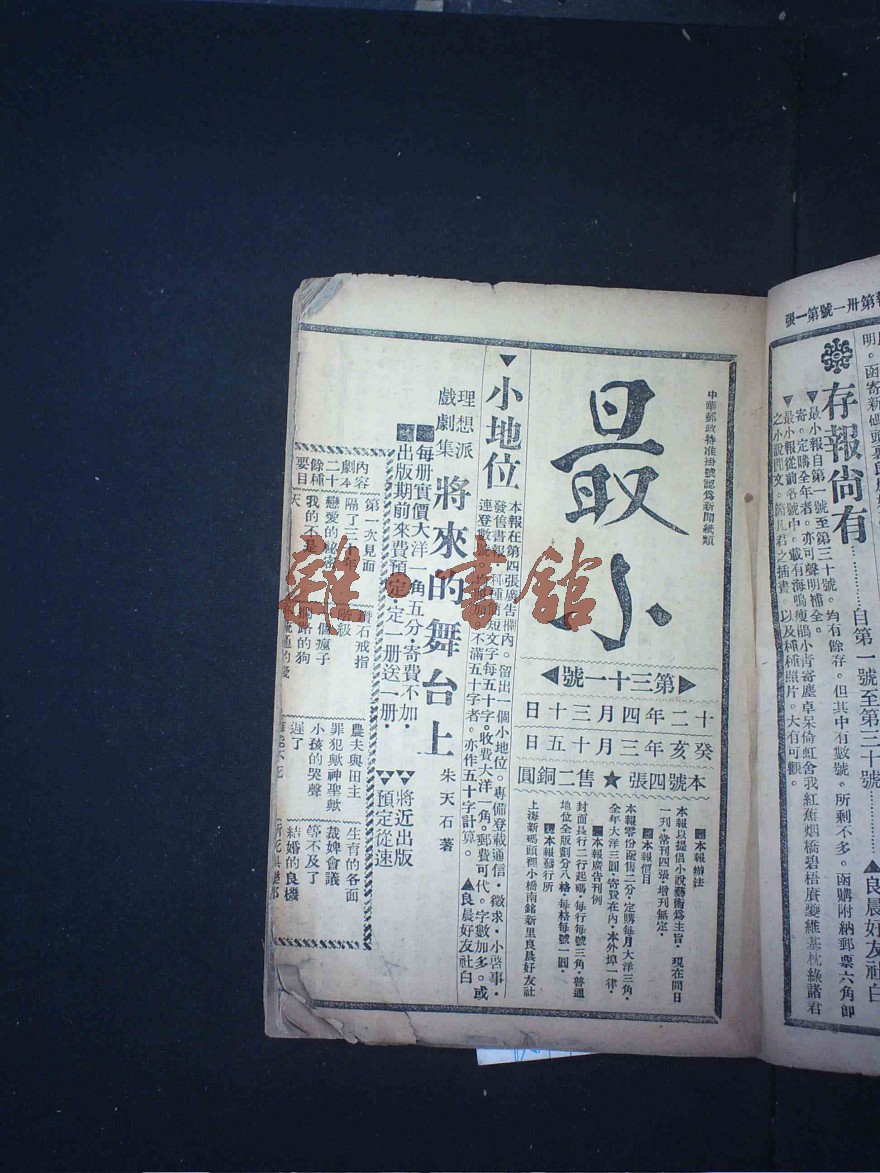 報第卅一號第一張
存報尚有
自第一號至第三十號
▲良晨好友社白
▼最小報自第一號至第三十號。均有餘存。但其中有數號。所剩不多。函購附納郵票六角即
寄。定購全年者。亦可聲明補全。
▼最小報從前各號中。載有海鳴瘦鵑小青寄塵卓呆倚虹舍我紅蕉烟橋碧梧賡夔維基枕綠諸君
之小說閒文。
君之插書。以及種種照片。大有可觀。
中華郵政特准掛號認爲新聞紙類
最小
第三十一號
十二年四月三十日
癸亥年三月十五日
本號四張★售二銅圓
本報辦法
本報以提倡小說藝術爲主旨。現在間日
一刊。常刊四張。增刊無定。
本報價目
本報零份配售二分。定購每月大洋三角。
全年大洋三圓。寄費在內。本外埠一律。
本報廣告刊例
封面長行二行起碼。每行每號三角。普通
地位全版劃分八格。每格每號一圓。
本報發行所
上海新碼頭裡小橋南銘新里良晨好友社
▼小地位
本報在第四張廣告欄內。留出一個小地位。專備登載通信·徵求·小啓事·
發售書報
種種簡短文字每五十字。收費大洋一角。郵費可代。字數加多。或
連登數號。均
加。不滿五十字者。亦作五十字計算。
▲良晨好友社白
理想派
戲劇集
將來的舞台上
朱天石著
每册實價大洋一角五分·寄費不加·
出版期前來費預定·定一册送一册·
將近出版
預定從速
內容
劇本
二十
餘種
要目
第一次見面
隔了三十年
戀愛的祕密
我的不是
天
鑽石戒指
階級
一個瘋子
的狗
農夫與田主
罪犯歟神聖歟
小孩的哭聲
遲了
生育的各面
裁婢會議
等不及了
結婚的良機
雜·書館